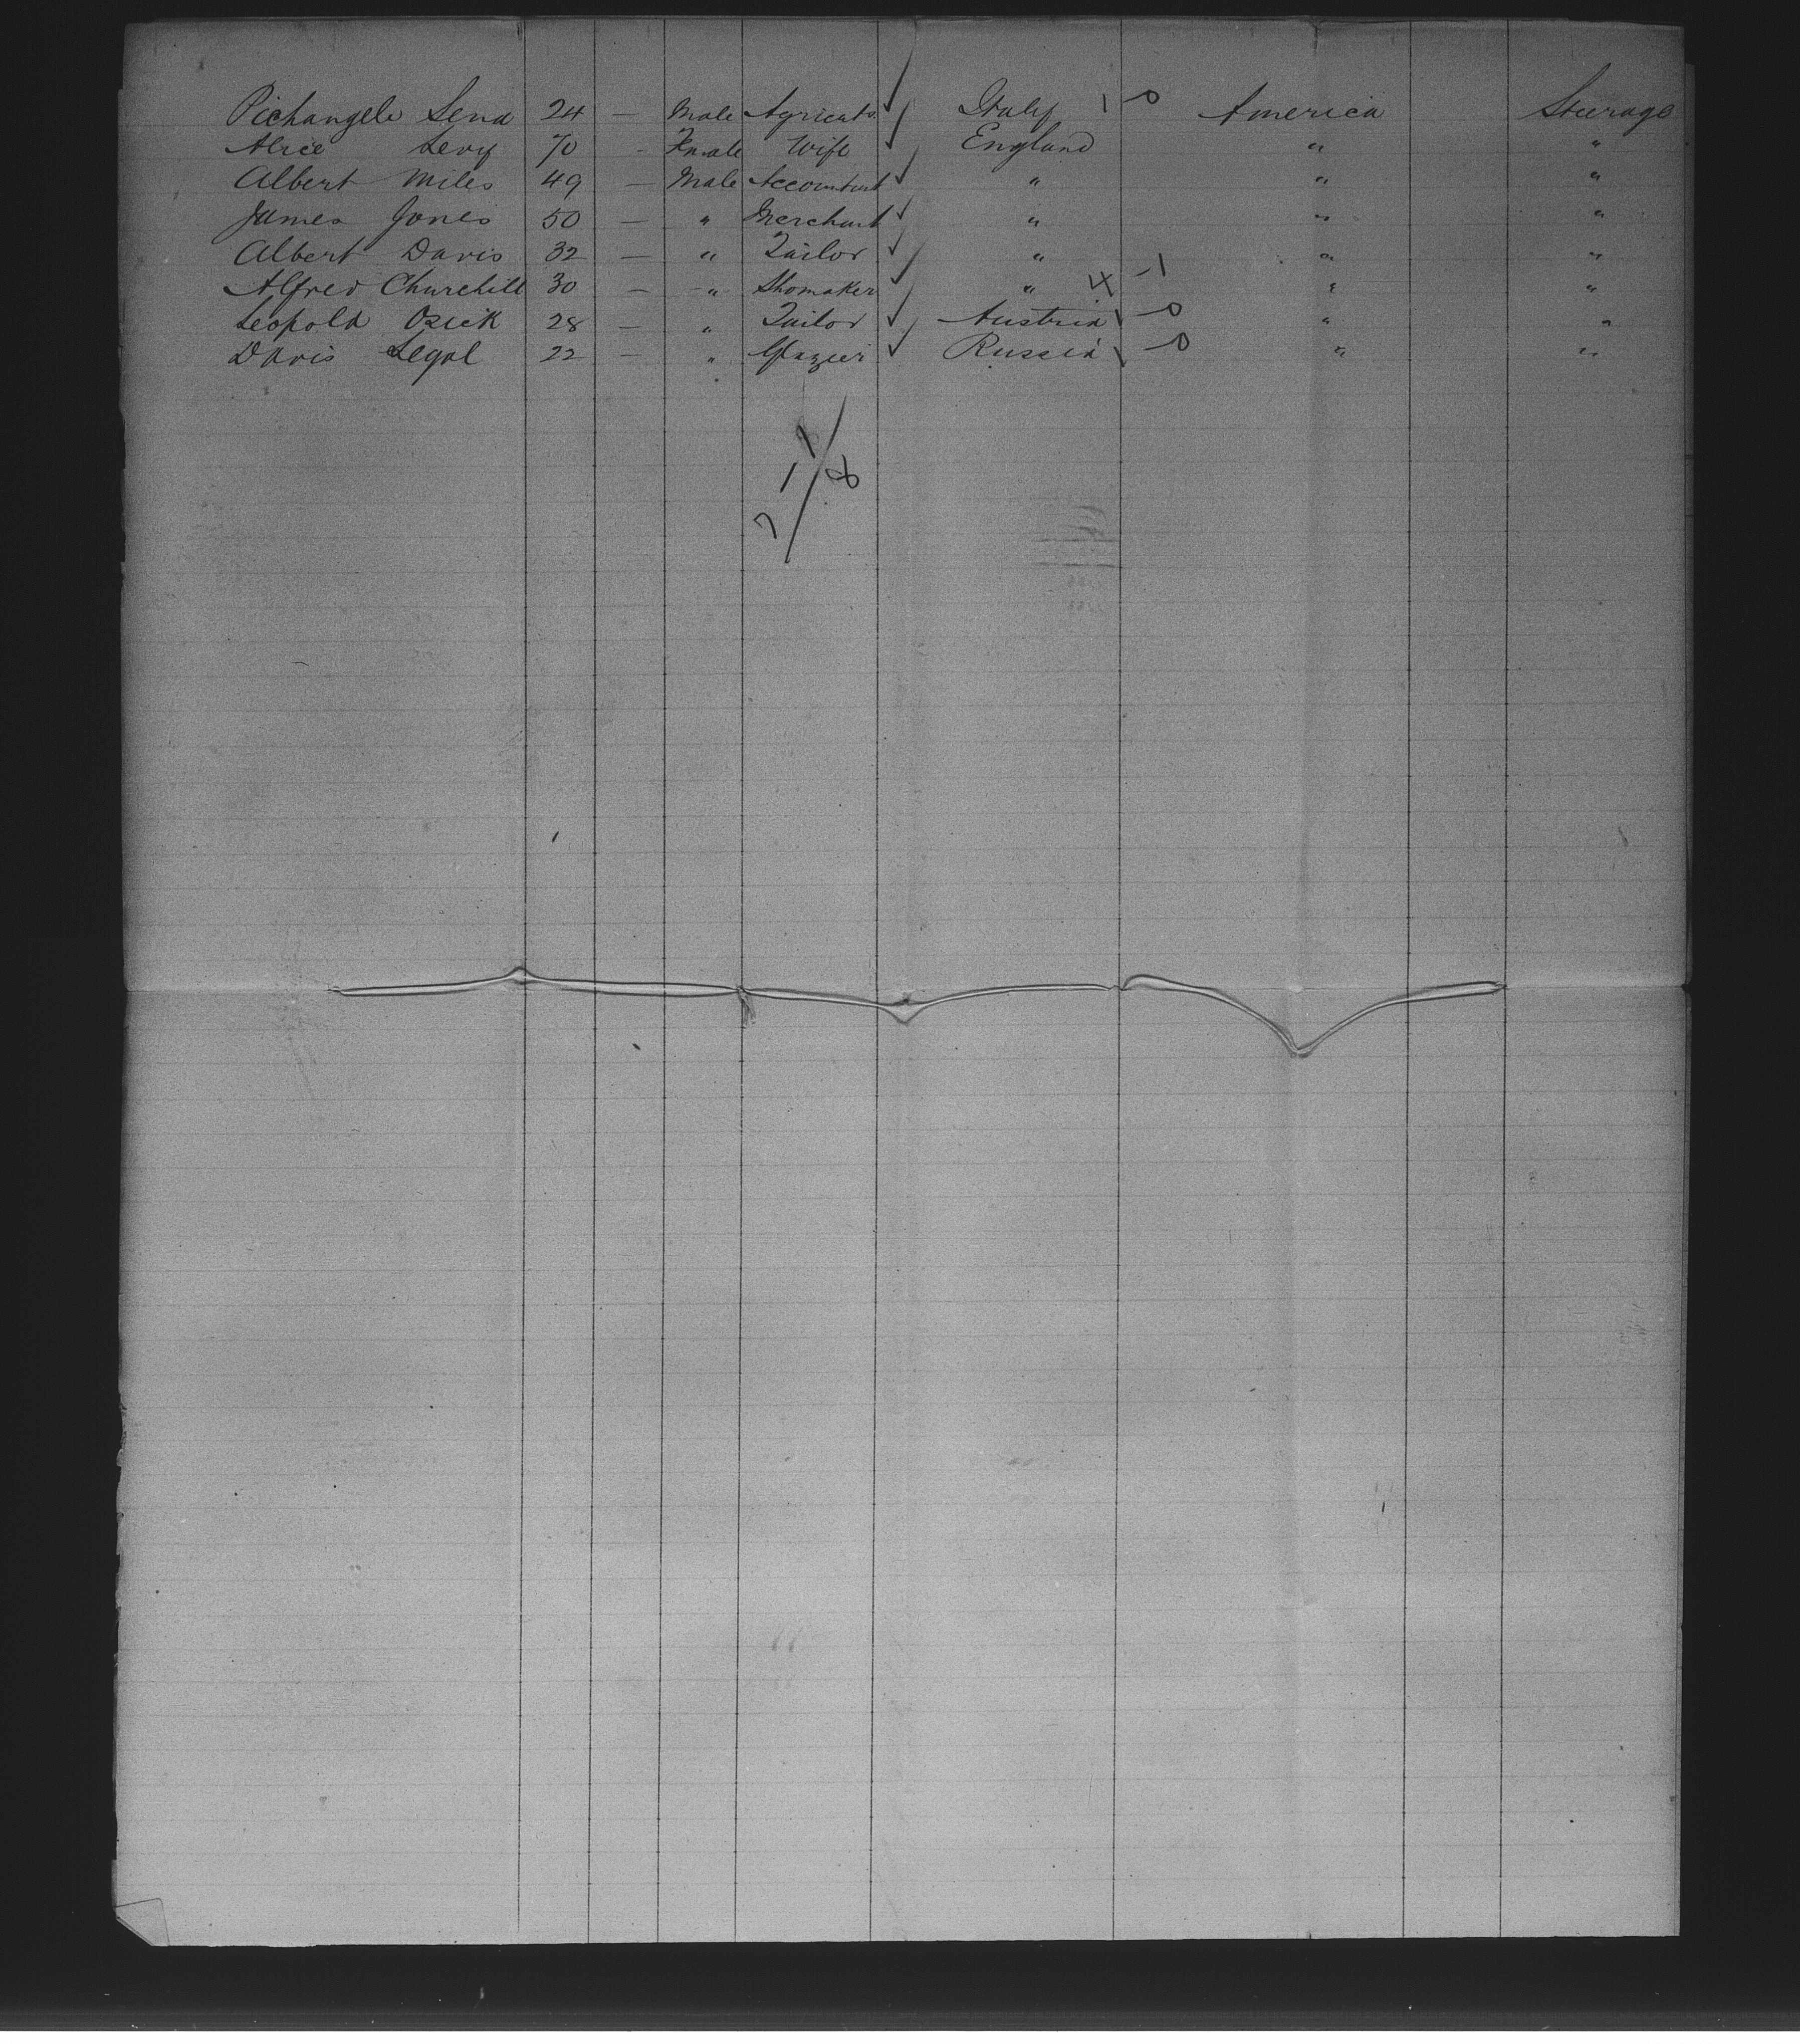 Pichangelo Sena 24 — Male Agricult. ✓ Italy 1 -0 America Steerage
Alice Levy 70 - Female Wife ✓ England " "
Albert Miles 49 — Male Accountant ✓ " " "
James Jones 50 — " Merchant ✓ " " "
Albert Davis 32 — " Tailor ✓ " " "
Alfred Churchill 30 — " Shomaker ✓ " 4 -1 " "
Leopold Ozick 28 — " Tailor ✓ Austria \ -0 " "
Davis Segal 22 — " Glazier ✓ Russia \ -0 " "
1
1 / 8
7